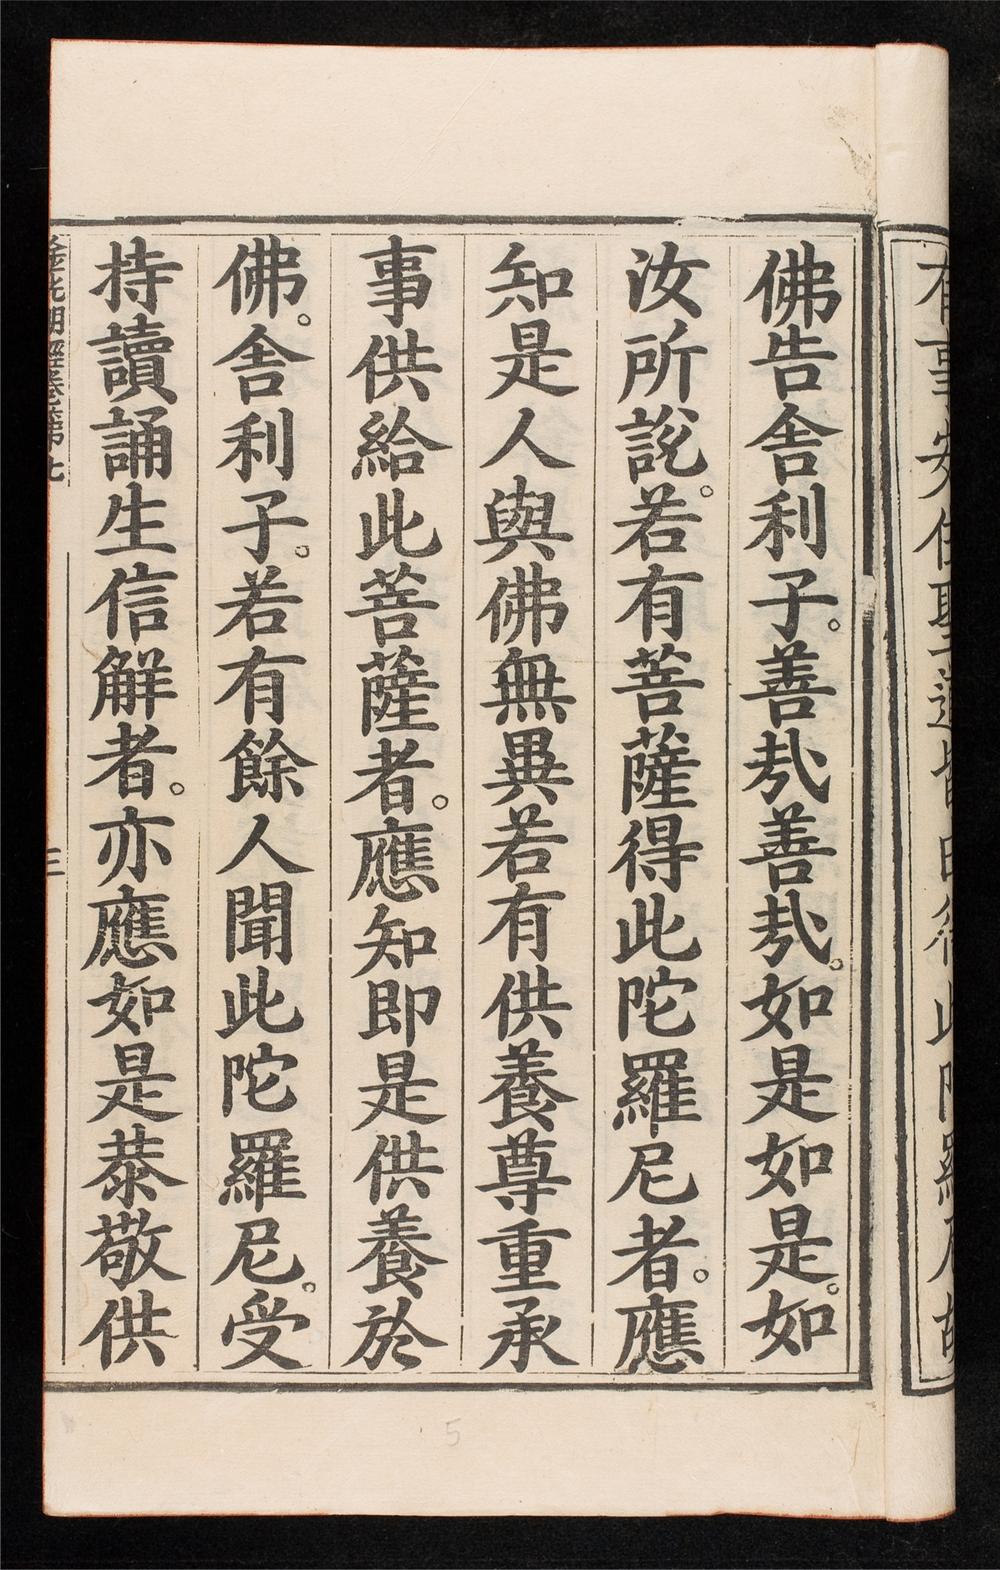 佛告舍利子。善㢤善㢤。如是如是。如
汝所說。若有菩薩得此陀羅尼者。應
知是人與佛無異若有供養尊重承
事供給此菩薩者。應知即是供養於
佛。舍利子。若有餘人聞此陀羅尼。受
持讀誦生信解者。亦應如是恭敬供
金光明經卷第七
三
5